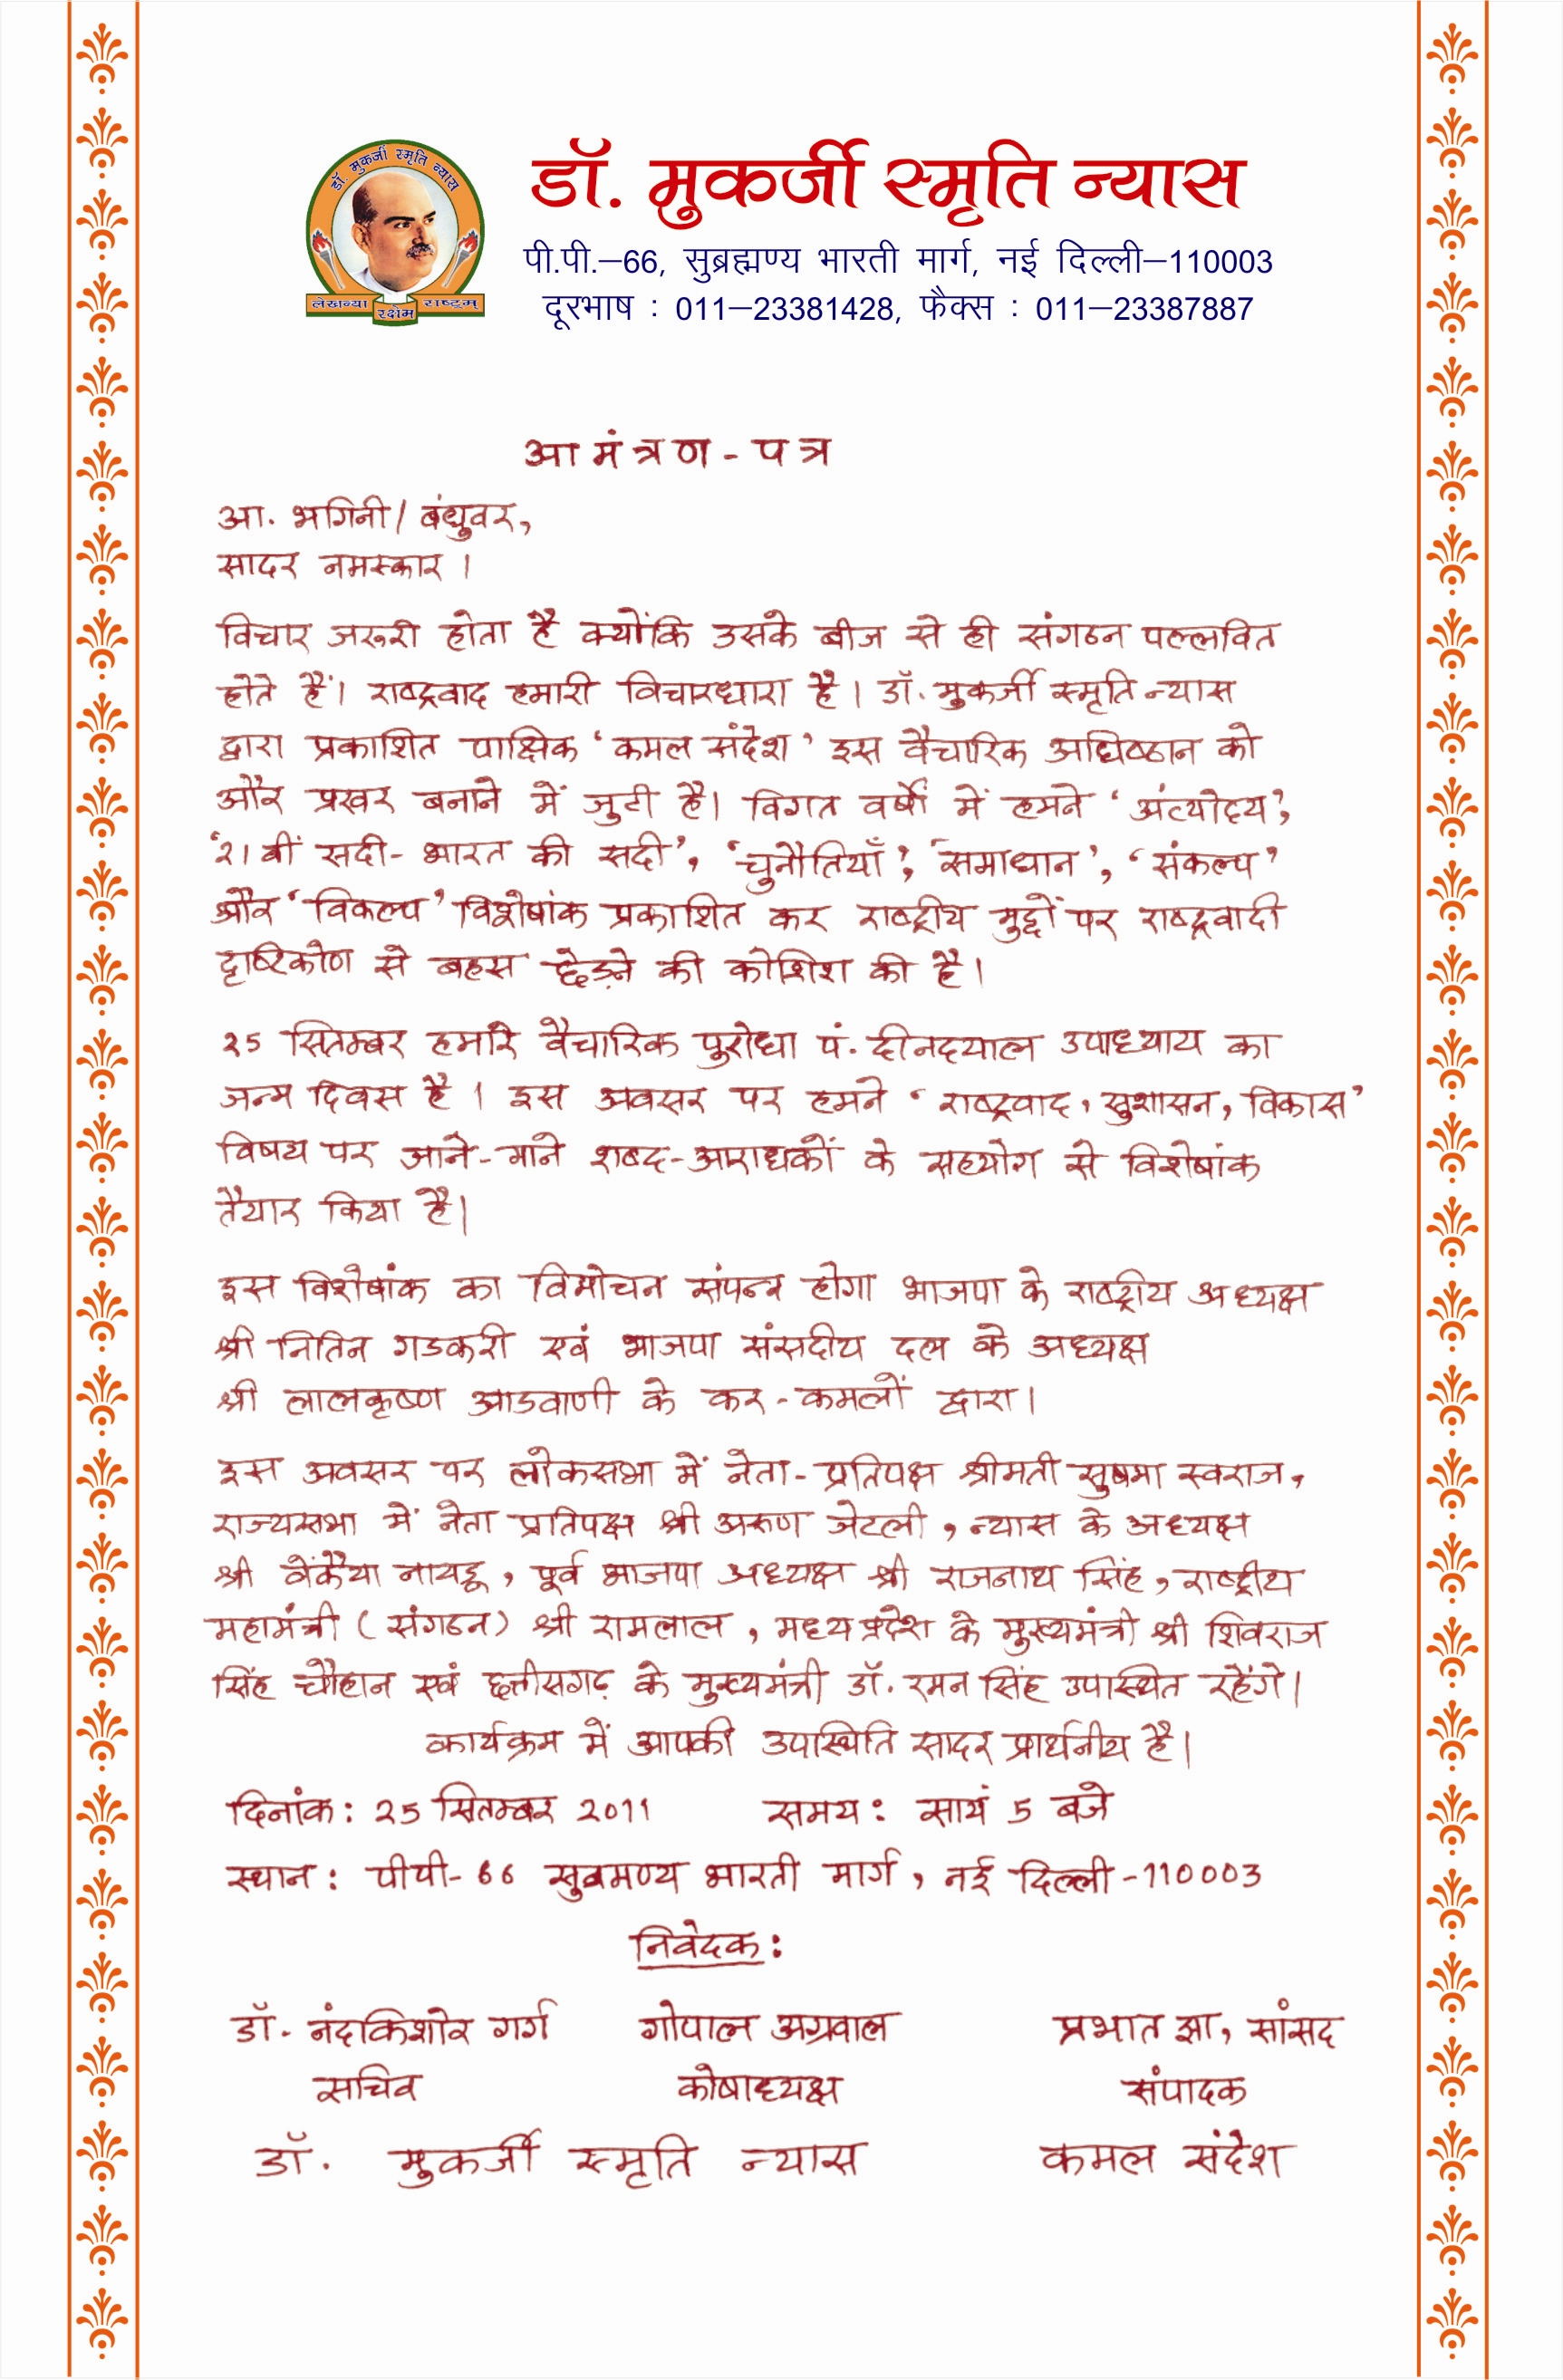 डॉ. मुकर्जी स्मृति न्यास
लेखन्या रक्षेम राष्ट्रम्
डॉ. मुकर्जी स्मृति न्यास
पी.पी.–66, सुब्रह्मण्य भारती मार्ग, नई दिल्ली–110003
दूरभाष : 011–23381428, फैक्स : 011–23387887
आमंत्रण-पत्र
आ. भगिनी/ बंधुवर,
सादर नमस्कार ।
विचार जरूरी होता है क्योंकि उसके बीज से ही संगठन पल्लवित
होते हैं। राष्ट्रवाद हमारी विचारधारा है। डॉ. मुकर्जी स्मृति न्यास
द्वारा प्रकाशित पाक्षिक ‘कमल संदेश’ इस वैचारिक अधिष्ठान को
और प्रखर बनाने में जुटी है। विगत वर्षों में हमने ‘अंत्योदय’,
‘21वीं सदी- भारत की सदी’, ‘चुनौतियाँ’, ‘समाधान’, ‘संकल्प’
और ‘विकल्प’ विशेषांक प्रकाशित कर राष्ट्रीय मुद्दों पर राष्ट्रवादी
दृष्टिकोण से बहस छेड़ने की कोशिश की है।
25 सितम्बर हमारे वैचारिक पुरोधा पं. दीनदयाल उपाध्याय का
जन्म दिवस है । इस अवसर पर हमने ‘राष्ट्रवाद, सुशासन, विकास’
विषय पर जाने-माने शब्द-आराधकों के सहयोग से विशेषांक
तैयार किया है।
इस विशेषांक का विमोचन संपन्न होगा भाजपा के राष्ट्रीय अध्यक्ष
श्री नितिन गडकरी एवं भाजपा संसदीय दल के अध्यक्ष
श्री लालकृष्ण आडवाणी के कर-कमलों द्वारा।
इस अवसर पर लोकसभा में नेता-प्रतिपक्ष श्रीमती सुषमा स्वराज,
राज्यसभा में नेता प्रतिपक्ष श्री अरुण जेटली, न्यास के अध्यक्ष
श्री वेंकैया नायडू, पूर्व भाजपा अध्यक्ष श्री राजनाथ सिंह, राष्ट्रीय
महामंत्री (संगठन) श्री रामलाल, मध्य प्रदेश के मुख्यमंत्री श्री शिवराज
सिंह चौहान एवं छत्तीसगढ़ के मुख्यमंत्री डॉ. रमन सिंह उपस्थित रहेंगे।
कार्यक्रम में आपकी उपस्थिति सादर प्रार्थनीय है।
दिनांक: 25 सितम्बर 2011 समय: सायं 5 बजे
स्थान: पीपी-66 सुब्रमण्य भारती मार्ग, नई दिल्ली-110003
निवेदक:
डॉ. नंदकिशोर गर्ग गोपाल अग्रवाल प्रभात झा, सांसद
सचिव कोषाध्यक्ष संपादक
डॉ. मुकर्जी स्मृति न्यास कमल संदेश